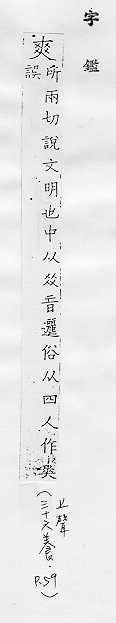 字鑑
爽所兩切說文明也中从㸚音邐俗从四人作
誤
上聲
(三十六養.P.59)